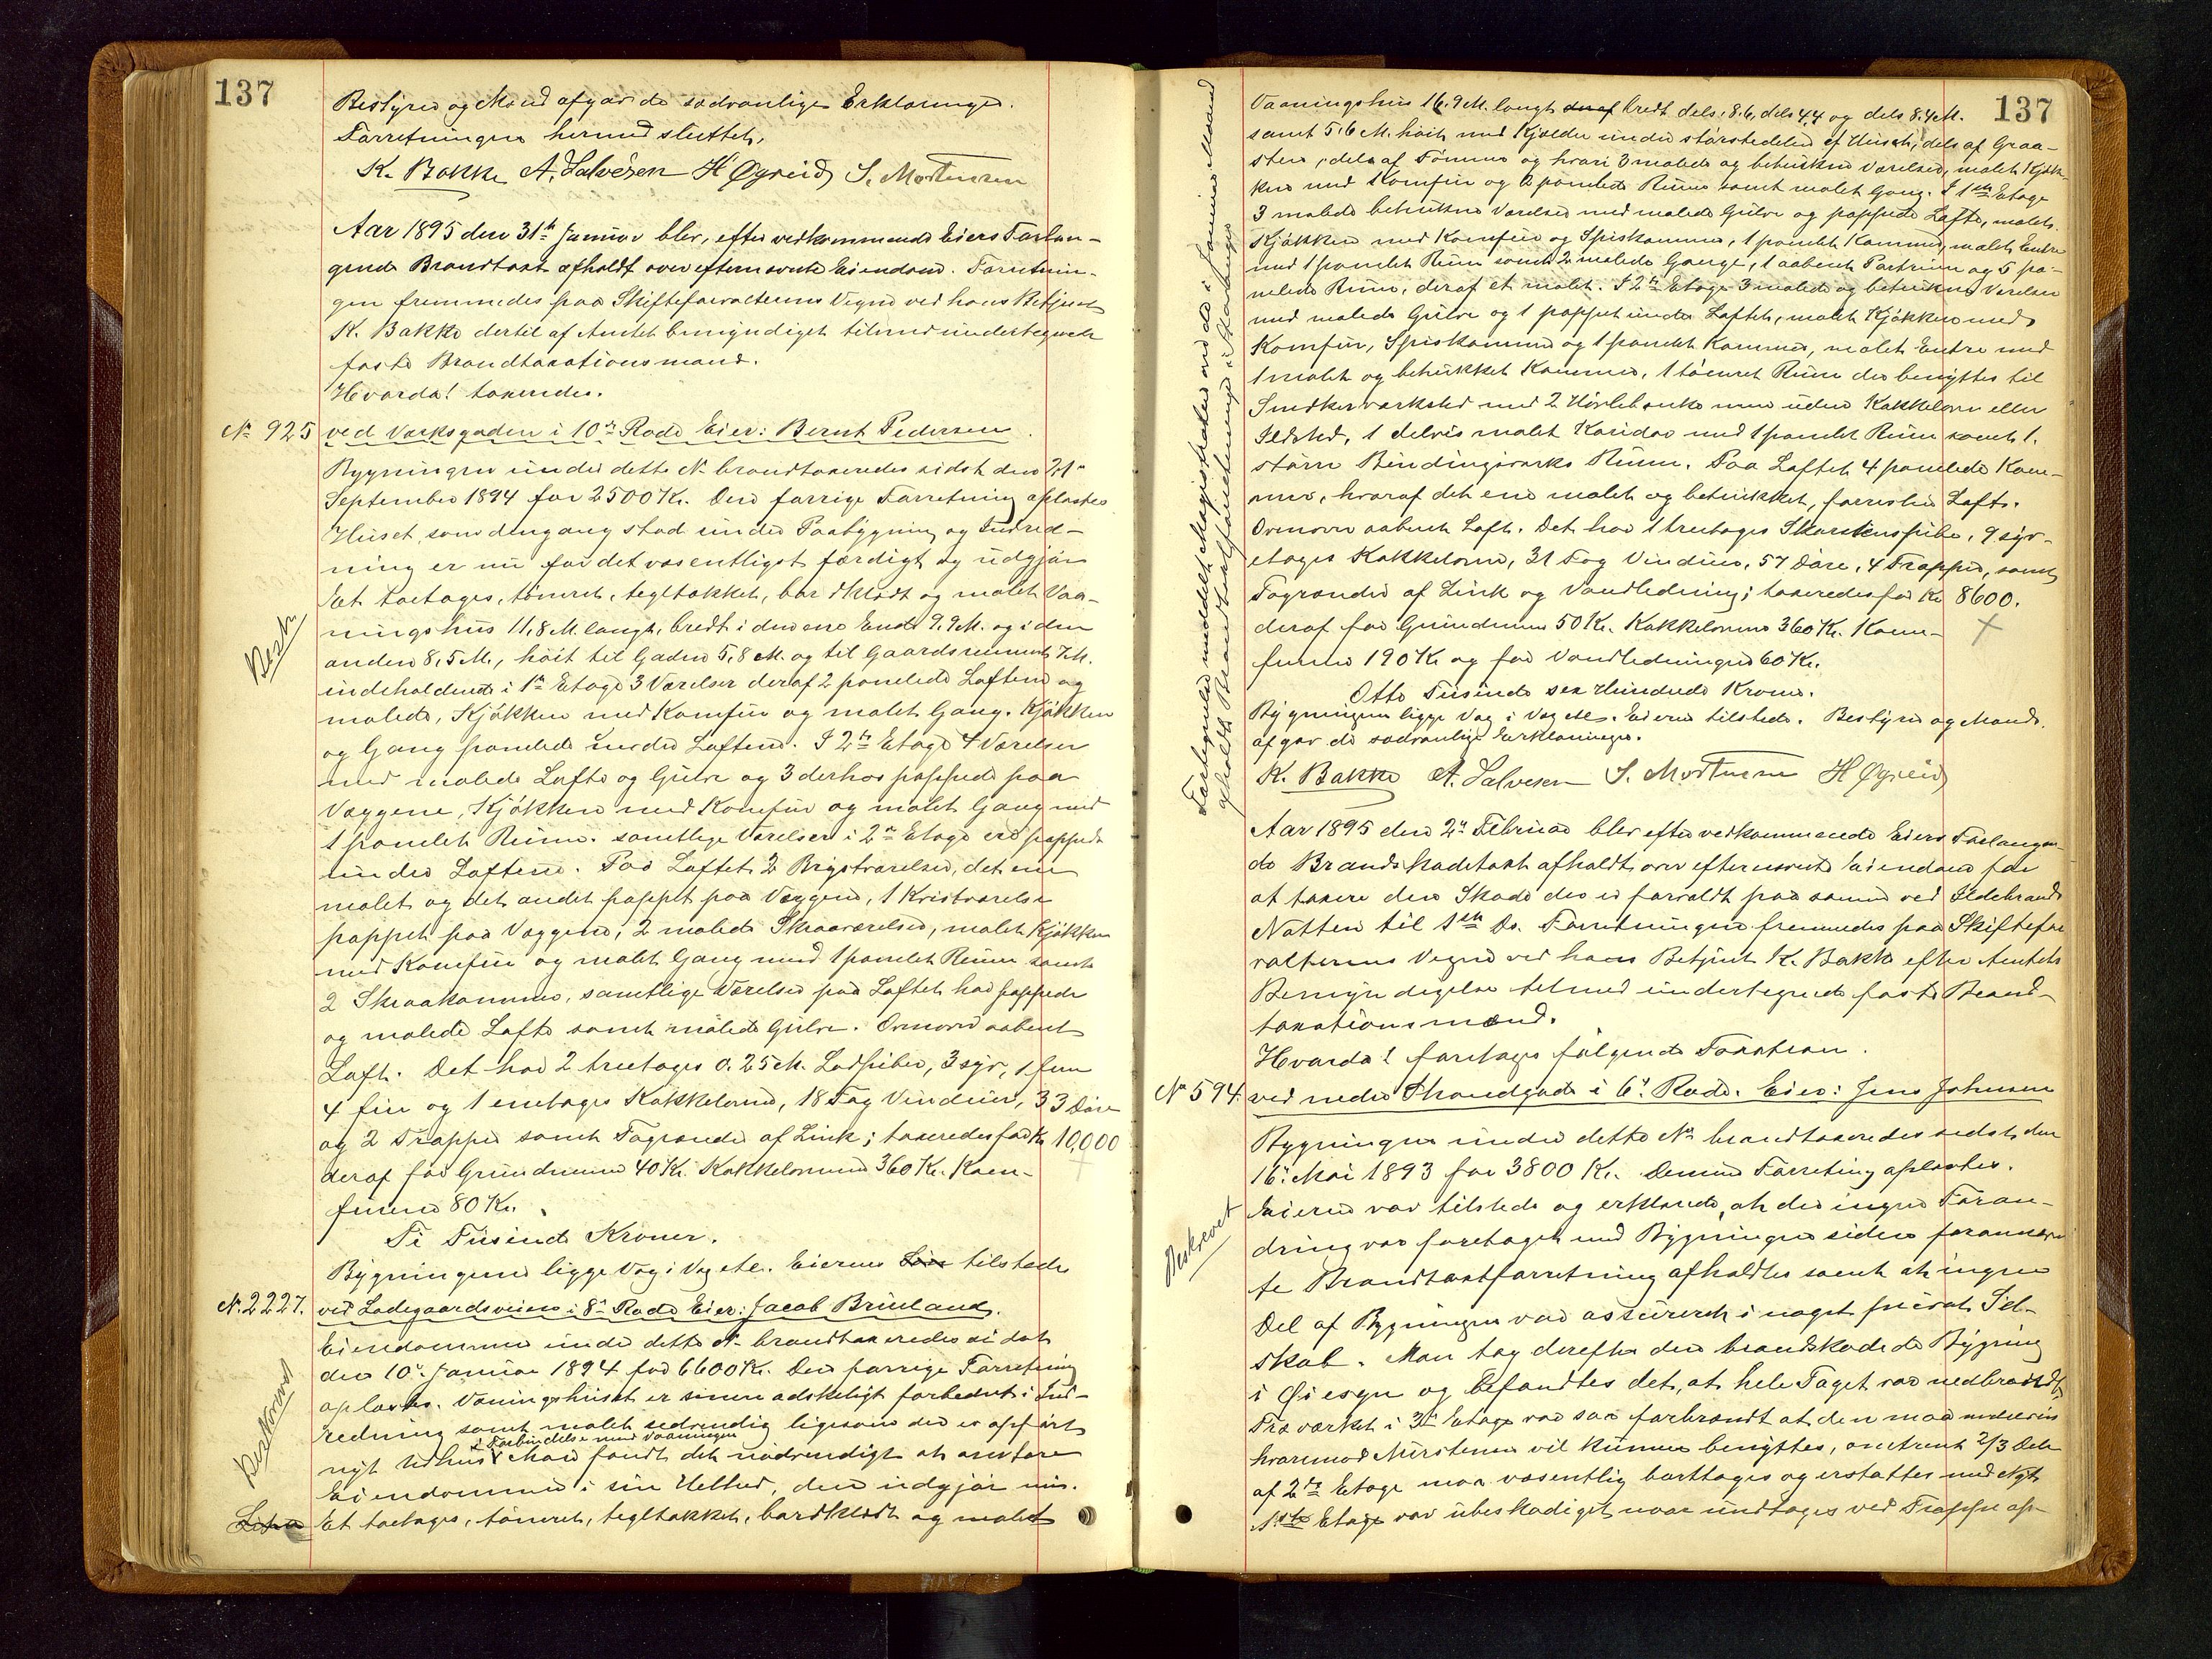 137
Bestyrer og Mænd afgav de sædvanlige Erklæringer.
Forretningen hermed sluttet.
K. Bakke A. Salvesen H Øgreid S. Mortensen
Aar 1895 den 31te Januar blev, efter vedkommende Eiers Forlan-
gende Brandtaxt afholdt over efternævnte Eiendom. Forretnin-
gen fremmedes paa Skifteforvalterens Vegne ved hans Betjent
K. Bakke dertil af Amtet bemyndiget tilmed undertegnede
faste Brandtaxationsmænd.
Hvorda! taxeredes.
No 925 ved Verksgaden i 10de Rode Eier: Bernt Pedersen.
Bygningen under dette No brandtaxeredes sidst den 21de
September 1894 for 2500 Kr. Den forrige Forretning oplæstes
Huset, som dengang stod under Paabygning og Indred-
ning er nu for det væsentligst færdigt og udgjør
Et toetages, tømret, tegltækket, bordklædt og malet Vaa-
ningshus 11,8 M. langt, bredt i den ene Ende 9.9 M. og i den
anden 8,5 M., høit til Gaden 5,8 M. og til Gaardsrummet 7 M.
Beskr.
indeholdende i 1ste Etage 3 Værelser deraf 2 panelede Loftene og
malede, Kjøkken med Komfur og malet Gang. Kjøkken
og Gang panelede under Loftene. I 2den Etage 4 Værelser
med malede Lofte og Gulve og 3 derhos pappede paa
Væggene, Kjøkken med Komfur og malet Gang med
1 panelet Rum. samtlige Værelser i 2den Etage ere pappede
under Loftene. Paa Loftet 2 Brystværelser, det ene
malet og det andet pappet paa Væggene, 1 Kvistværelse
pappet paa Væggene, 2 malede Skraaværelser, malet Kjøkken
med Komfur og malet Gang med 1 panelet Rum samt
2 Skraakammer, samtlige Værelser paa Loftet har pappede
og malede Lofte samt malede Gulve. Ovenover aabent
Loft. Det har 2 treetages 0.25 M. Lodpiber, 3 syv, 1 fem
4 fire og 1 enetages Kakkelovne, 18 Fag Vinduer, 33 Døre
og 2 Trapper samt Tagrender af Zink; taxeredes for Kr 10,000
deraf for Grundmuren 40 Kr. Kakkelovnene 360 Kr. Kom-
furene 80 Kr.
Ti Tusinde Kroner.
Bygningerne ligge Væg i Væg etc. Eieren tilstede
No 2227. ved Ladegaardsveien i 8de Rode Eier: Jacob Bruland.
Eiendommen under dette No brandtaxeredes sidst
den 10de Januar 1894 for 6600 Kr. Den forrige Forretning
oplæstes. Vaningshuset er senere adskeligt forbedret i Ind-
redning samt malet indvendig ligesom der er opført
i Forbindelse med Vaaningen
nyt Udhus Man fandt det nødvendigt at omtaxere
Eiendommen i sin Helhed, den udgjør nu.
Beskrevet
Litra Et toetages, tømret, tegltækket, bordklædt og malet
137
Vaaningshus 16.9 M. langt deraf bredt dels 8.6, dels 4.4 og dels 8.4 M.
samt 5.6 M. høit med Kjelder under størstedelen af Huset, dels af Graa-
sten, dels af Tømmer og hvori 3 malede og betrukne Værelser, malet Kjøk-
ken med Komfur og 2 panelede Rum samt malet Gang. I 1ste Etage
3 malede betrukne Værelser med malede Gulve og pappede Lofte, malet
Kjøkken med Komfur og Spiskammer, 1 panelet Kammer, malet Entre
med 1 panelet Rum samt 2 malede Gange, 1 aabent Portrum og 5 pa-
nelede Rum, deraf et malet. I 2den Etage 3 malede og betrukne Værelser
med malede Gulve og 1 pappet under Loftet, malet Kjøkken med
Komfur, Spiskammer og 1 panelet Kammer, malet Entre med
1 malet og betrukket Kammer, 1 tømret Rum der benyttes til
Snedkerværksted med 2 Høvlebænke men uden Kakkelovn eller
Ildsted, 1 delvis malet Koridor med 1 panelet Rum samt 1.
større Bindingsværks Rum. Paa Loftet 4 panelede Kam-
mer, hvoraf det ene malet og betrukket, forresten Lofts.
Ovenover aabent Loft. Det har 1 treetages Skorstenspibe, 9 syv-
etages Kakkelovne, 31 Fag Vinduer, 57 Døre, 4 Trapper, samt
Tagrender af Zink og Vandledning; taxeredes for Kr 8600.
deraf for Grundmuren 50 Kr. Kakkelovnene 360 Kr. Kom-
furene 190 Kr og for Vandledningen 60 Kr.
Otte Tusinde sex Hundrede Kroner.
Bygningerne ligge Væg i Væg etc. Eieren tilstede. Bestyrer og Mænd
afgav de sædvanlige Erklæringer.
K. Bakke A. Salvesen S. Mortensen H Øgreid
Fortegnelse meddelt Magistraten over de i Januar Maaned
afholdte Brandtaxtforretninger
Aar 1895 den 2den Februar blev efter vedkommende Eiers Forlangen-
de Brandskadetaxt afholdt over efternævnte Eiendom for
at taxere den Skade der er forvoldt paa samme ved Ildebrand
Natten til 1ste Ds. Forretningen fremmedes paa Skiftefor
valterens Vegne ved hans Betjent K. Bakke efter Amtets
Bemyndigelse tilmed undertegnede faste Brand-
taxationsmænd.
Hvorda! foretages følgende Taxation.
No 594. ved nedre Strandgade i 6te Rode. Eier: Jens Johnsen
Bygningen under dette No brandtaxeredes sidst den
16de Mai 1893 for 3800 Kr. Denne Forretning oplæstes.
Eieren var tilstede og erklærede, at der ingen Foran-
dring var foretaget med Bygningen siden forannævn
te Brandtaxtforretning afholdtes samt at ingen
Beskrevet
Del af Bygningen var assureret i noget privat Sel-
skab. Man tog derefter den brandskadede Bygning
i Øiesyn og befandtes det, at hele Taget var nedbrændt,
Træværket i 3die Etage var saa forbrændt at den maa
hvorimod Murstenen vil kunne benyttes, omtrent 2/3 Dele
af 2den Etage maa væsentlig borttages og erstattes med Nyt
1ste Etage var ubeskadiget naar undtages ved Trappe op-